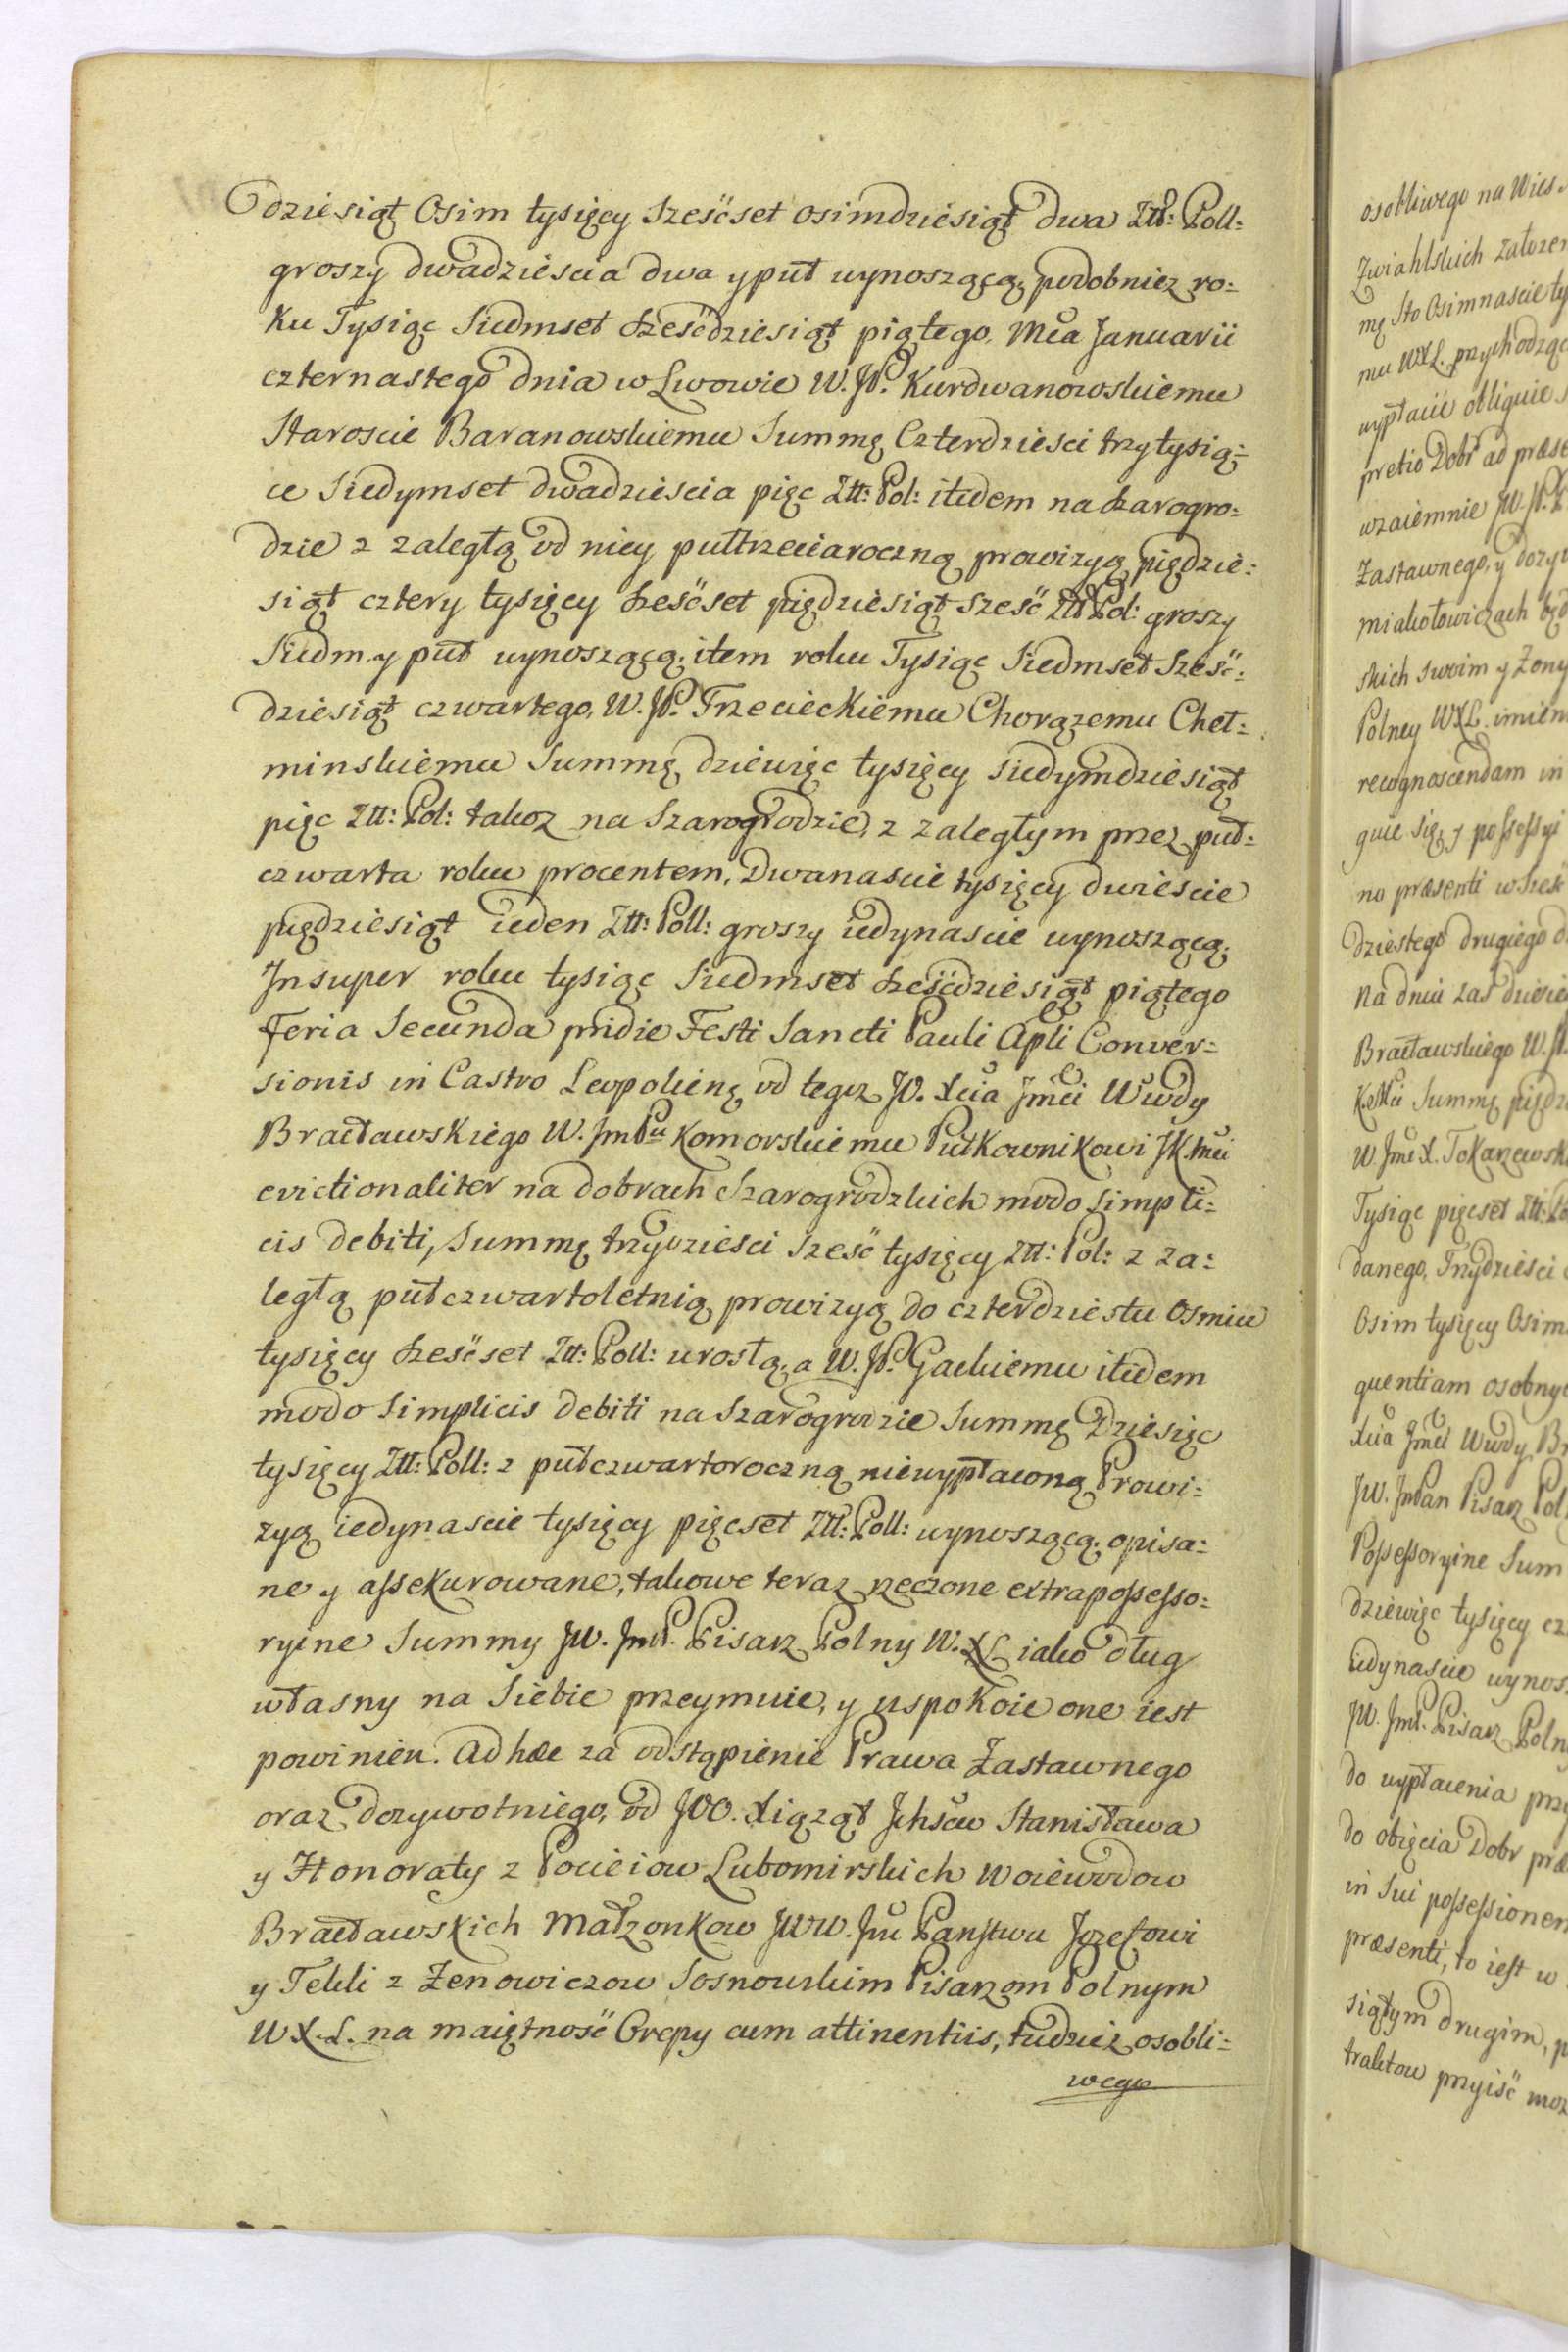 dziesiąt Osim tysięcy sześćset osimdziesiąt dwa Ztt: Poll:
groszy dwadziescia dwa y puł wynoszącą, podobnież ro=
ku Tysiąc Siedmset sześćdziesiąt piątego, Mca Januarii
czternastego dnia w Lwowie W. JP. Kurdwanowskiemu
Staroscie Baranowskiemu Summę Czterdziesci trzy tysią=
ce Siedymset dwadziescia pięc Ztt: Pol: itidem na szarogro=
dzie z zaległą od niey pułtrzeciaroczną prowizyą piędzie=
siąt cztery tysięcy sześćset pięćdziesiąt sześć Ztt Pol: groszy
Siedm y puł wynoszącą, item roku Tysiąc Siedmset Sześć=
dziesiąt czwartego, W. JP. Trzecieckiemu Chorązemu Cheł=
minskiemu Summę dziewięc tysięcy Siedymdziesiąt
pięc Ztt: Pol: takoz na Szarogrodzie, z zaległym przez puł=
czwarta roku procentem, Dwanascie tysięcy dwieście
pięćdziesiąt ieden Ztt: Poll: groszy iedynascie wynoszącą.
Insuper roku tysiąc Siedmset sześćdziesiąt piątego
Feria Secunda pridie Festi Sancti Pauli Apli Conver=
sionis in Castro Leopolien̄ę od tegoz JO. Xcia Jmci Wwdy
Bracławskiego W. JmPu Komorskiemu Pułkownikowi JKMci
evictionaliter na dobrach Szarogrodzkich modo simpli=
cis debiti, Summę trzydziesci sześć tysięcy Ztt: Pol: z za=
ległą pułczwartoletnią prowizyą do czterdziestu Osmiu
tysięcy sześćset Ztt: Poll: urosłą, a W. JP. Gackiemu itidem
modo Simplicis debiti na Szarogrodzie Summę Dziesięc
tysięcy Ztt: Poll: z pułczwartoroczną niewypłaconą Prowi=
zyą iedynascie tysięcy pięcset Ztt: Poll: wynoszącą, opisa=
ne y assekurowane, takowe teraz rzeczone extrapossesso=
ryine Summy JW. JmP. Pisarz Polny W.X.L. iako dług
własny na Siebie przeymuie, y uspokoie one iest
powinien. Ad hæc za odstąpienie Prawa Zastawnego
oraz dozywotniego, od JOO. Xiążąt Jchmciow Stanisława
y Honoraty z Pocieiow Lubomirskich Woiewodow
Bracławskich Małzonkow JWW. Jm Panstwu Jozefowi
y Tekli z Zenowiczow Sosnowskim Pisarzom Polnym
W.X.L. na maiętność Orepy cum attinentiis, tudziez osobli=
wego
osobliwego na Wies
Zwiahlskich załozen
mę Sto Osimnascie ty
mu WXL. przychodząc
wypłacie obliguie s
pretio Dobr ad præse
wzaiemnie JW. JP.
Zastawnego, y dozyw
miakołowiczach
skich swoim y Zony
Polney WXL. imien
recognoscendam in
guie się y possessyi
no præsenti w Sześć
dziestego drugiego d
Na dniu zas dwudzie
Bracławskiego W. JP.
K.Mci Summę pięćdzi
W. Jmc X. Tokarzewsk
Tysiąc pięcset Ztt: Po
danego, Trzydziesci
Osim tysięcy Osim
quentiam osobny
Xcia Jmci Wwdy Br
JW. JmPan Pisarz Pol
Possessoryine Sum
dziewięc tysięcy cz
iedynascie wynos
JW. JmP. Pisarz Poln
do wypłacenia prz
do obięcia Dobr præ
in Sui possessionem
præsenti, to iest w
siątym drugim, p
traktow przyiść moz